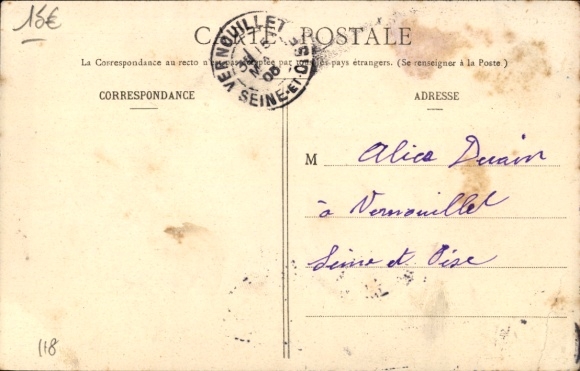 15€
CARTE POSTALE
La Correspondance au recto n'est pas acceptée par tous les pays étrangers. (Se renseigner à la Poste)
VERNOUILLET
SEINE-ET-OISE
06
CORRESPONDANCE
ADRESSE
M Alice
à Vernouillet
Seine et Oise
118